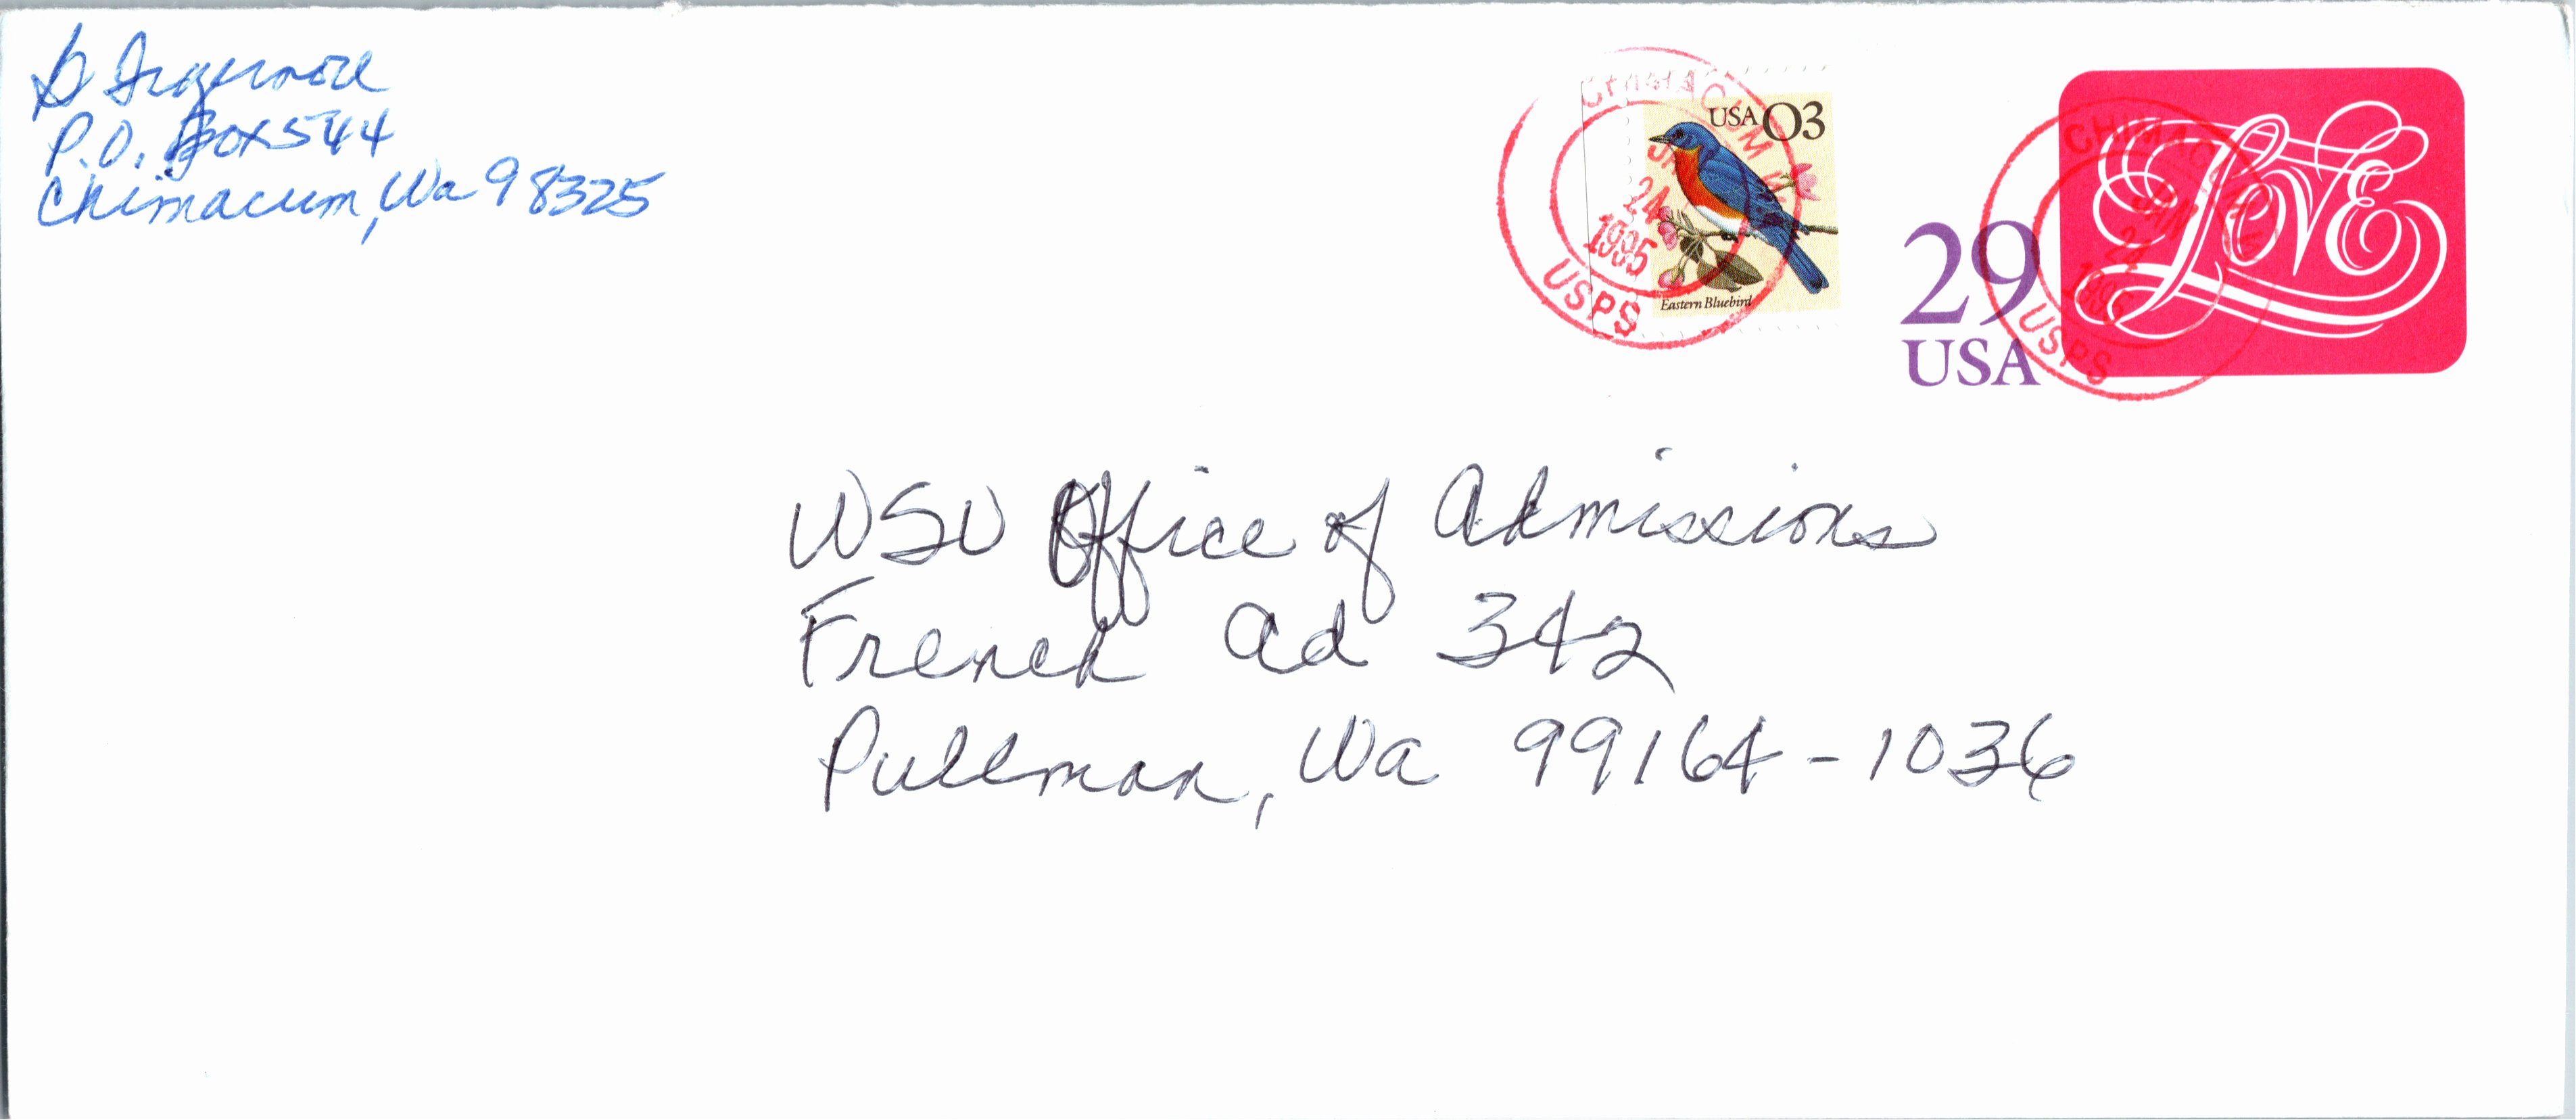 P.O. Box 544
Chimacum, Wa 98325
USA 03
Eastern Bluebird
CHIMACUM WA
JAN
24
1995
USPS
29
USA
LOVE
CHIMACUM WA
JAN
24
1995
USPS
WSU Office of Admissions
French Ad 342
Pullman, Wa 99164-1036